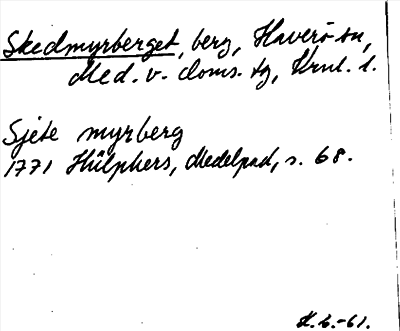 Skedmyrberget, berg, Haverö sn,
Med. v. doms. tg, Vrnl. l.
Sjete myrberg
1771 Hülphers, Medelpad, s. 68.
H. L.-61.